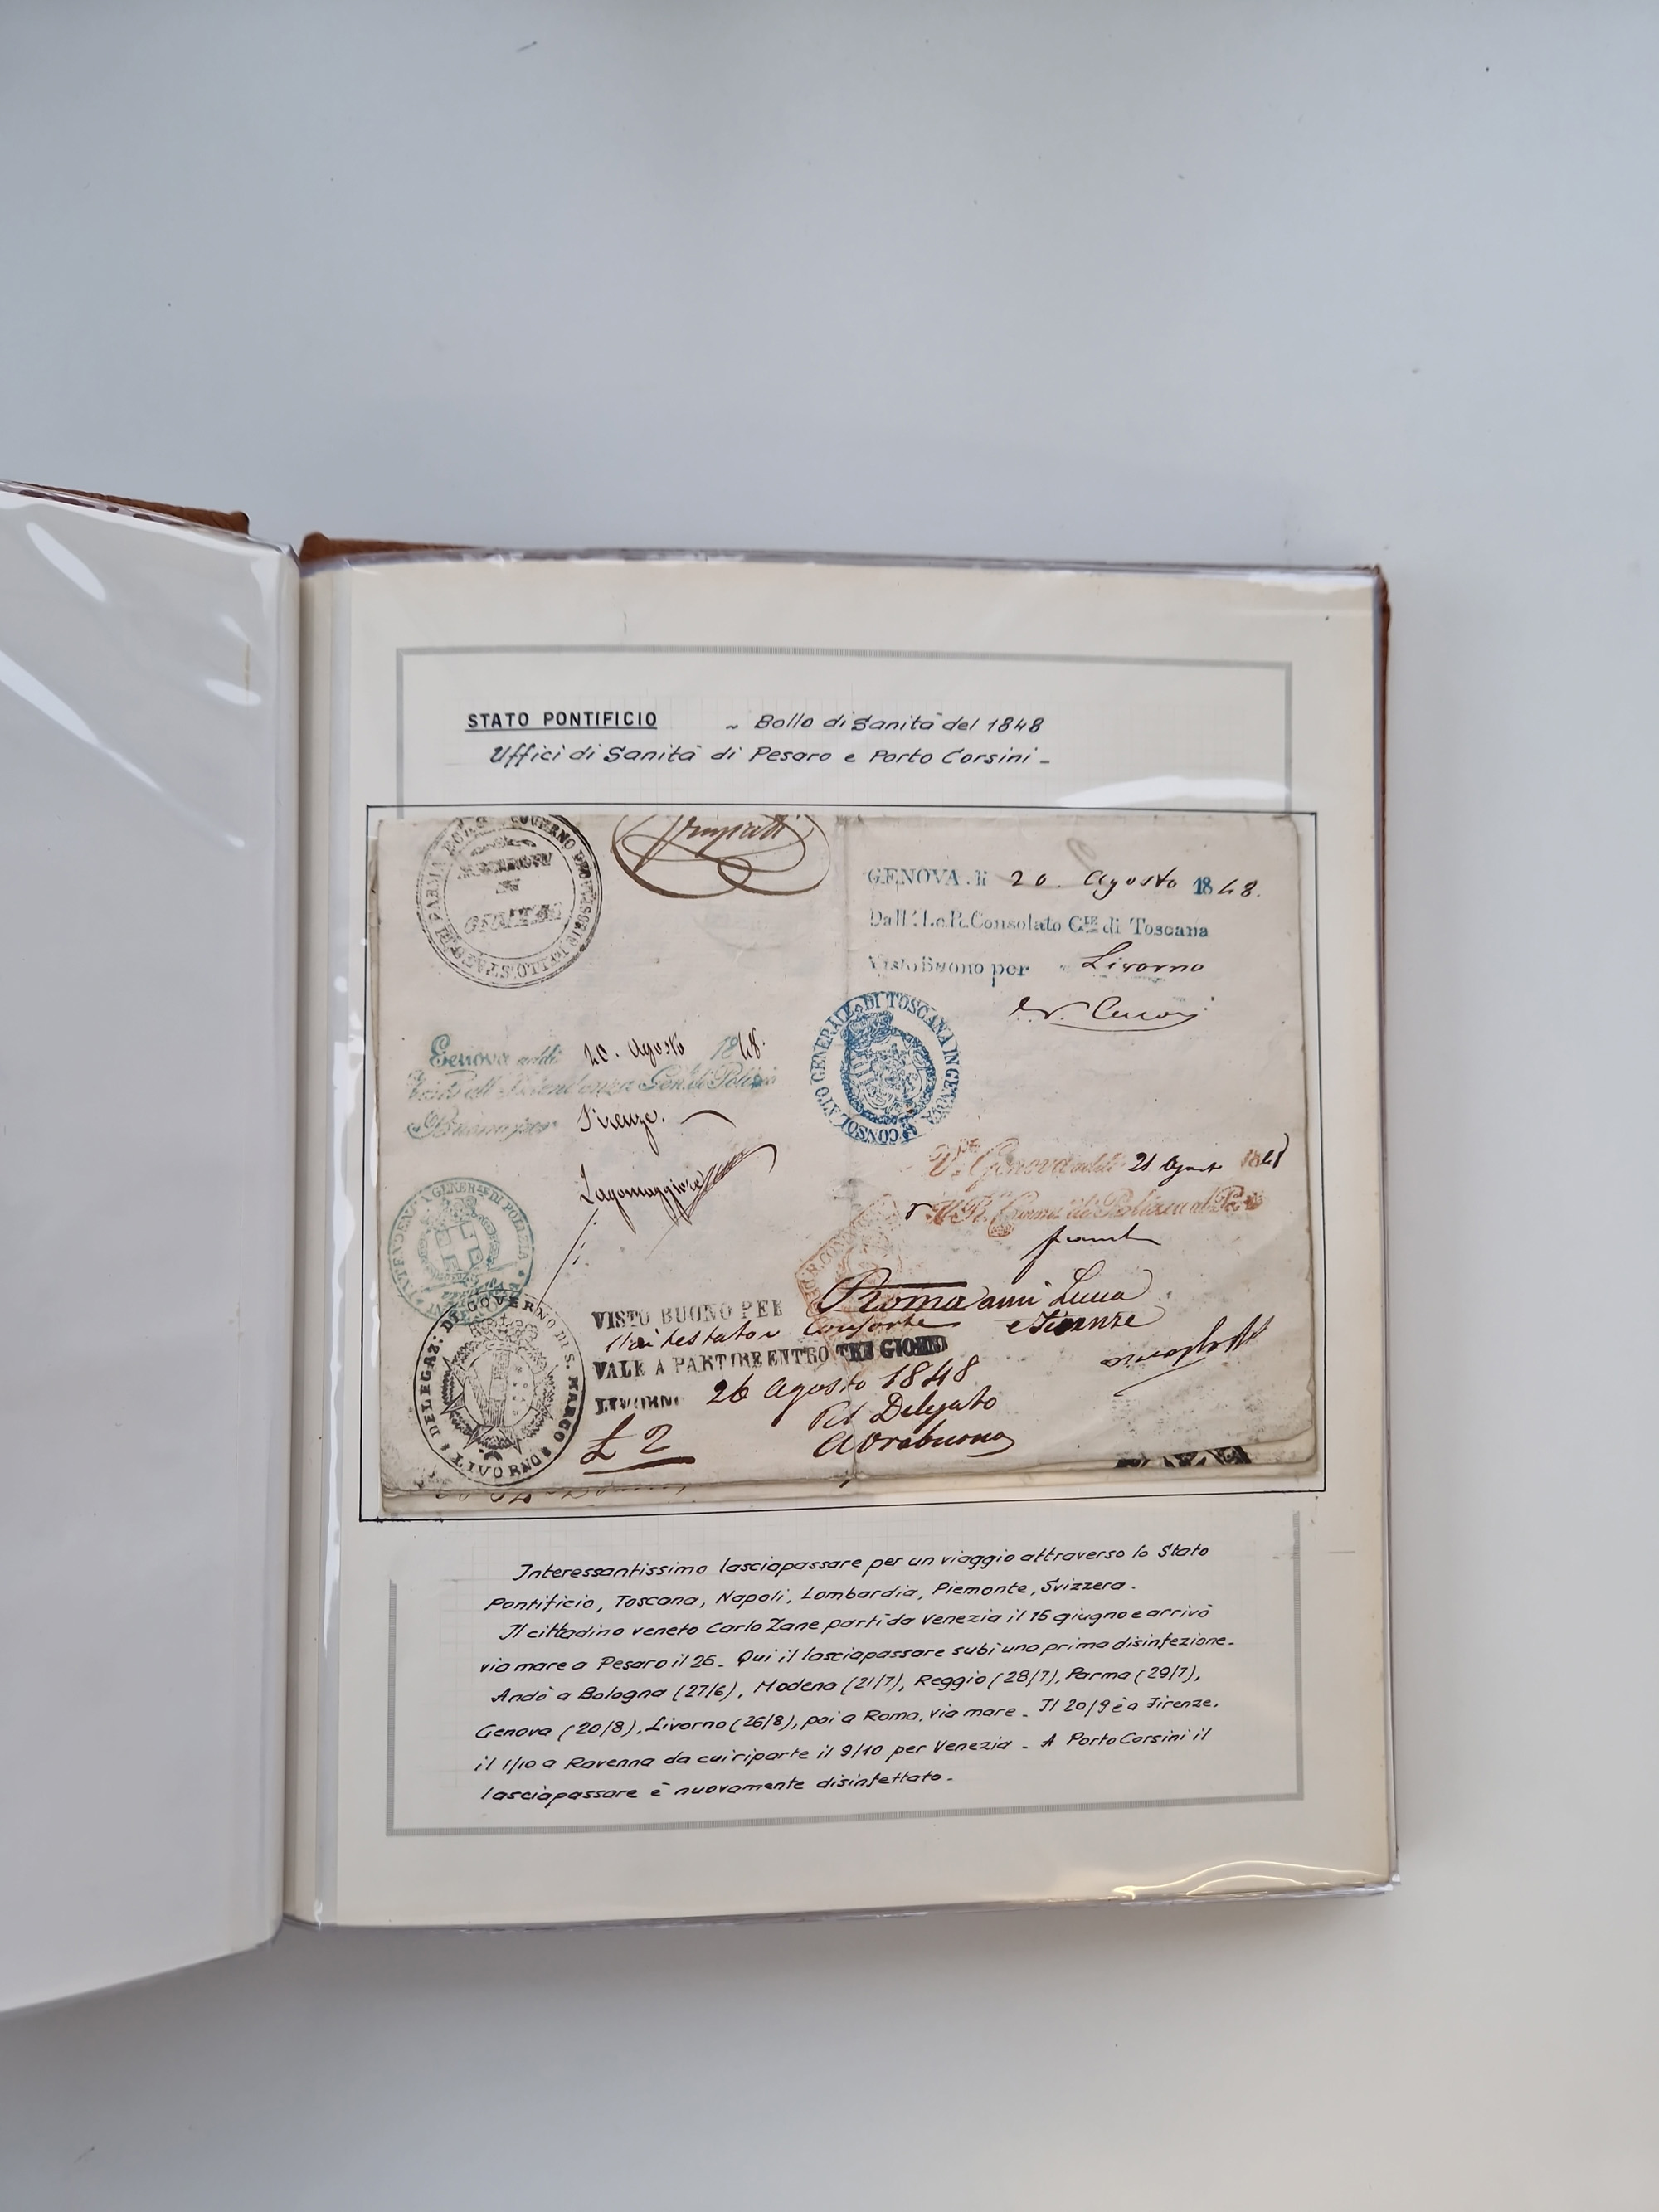 STATO PONTIFICIO - Bollo di Sanità del 1848
Uffici di Sanità di Pesaro e Porto Corsini -
GOVERNO PROVVISORIO DELLO STATO DI PARMA
GENOVA. li 20. Agosto 1848.
Dall'I. e R. Consolato Gle di Toscana
Visto Buono per Livorno
CONSOLATO GENERALE DI TOSCANA IN GENOVA
Genova addì 20. Agosto 1848.
Visto all'Intendenza Gen. di Polizia
Buono per Firenze.
Lagomaggiore
INTENDENZA GENERALE DI POLIZIA
Genova addì 21 Agosto 1848
VISTO BUONO PER Roma Lucca
e Firenze
VALE A PARTIRE ENTRO TRE GIORNI
LIVORNO 26 Agosto 1848
Il Delegato
£ 2
DELEGAZ: DI GOVERNO DI S. MARCO
LIVORNO
Interessantissimo lasciapassare per un viaggio attraverso lo Stato
Pontificio, Toscana, Napoli, Lombardia, Piemonte, Svizzera.
Il cittadino veneto Carlo Zane partì da Venezia il 15 giugno e arrivò
via mare a Pesaro il 26. Qui il lasciapassare subì una prima disinfezione.
Andò a Bologna (27/6), Modena (21/7), Reggio (28/7), Parma (29/7),
Genova (20/8), Livorno (26/8), poi a Roma, via mare. Il 20/9 è a Firenze,
il 1/10 a Ravenna da cui riparte il 9/10 per Venezia - A Porto Corsini il
lasciapassare è nuovamente disinfettato.